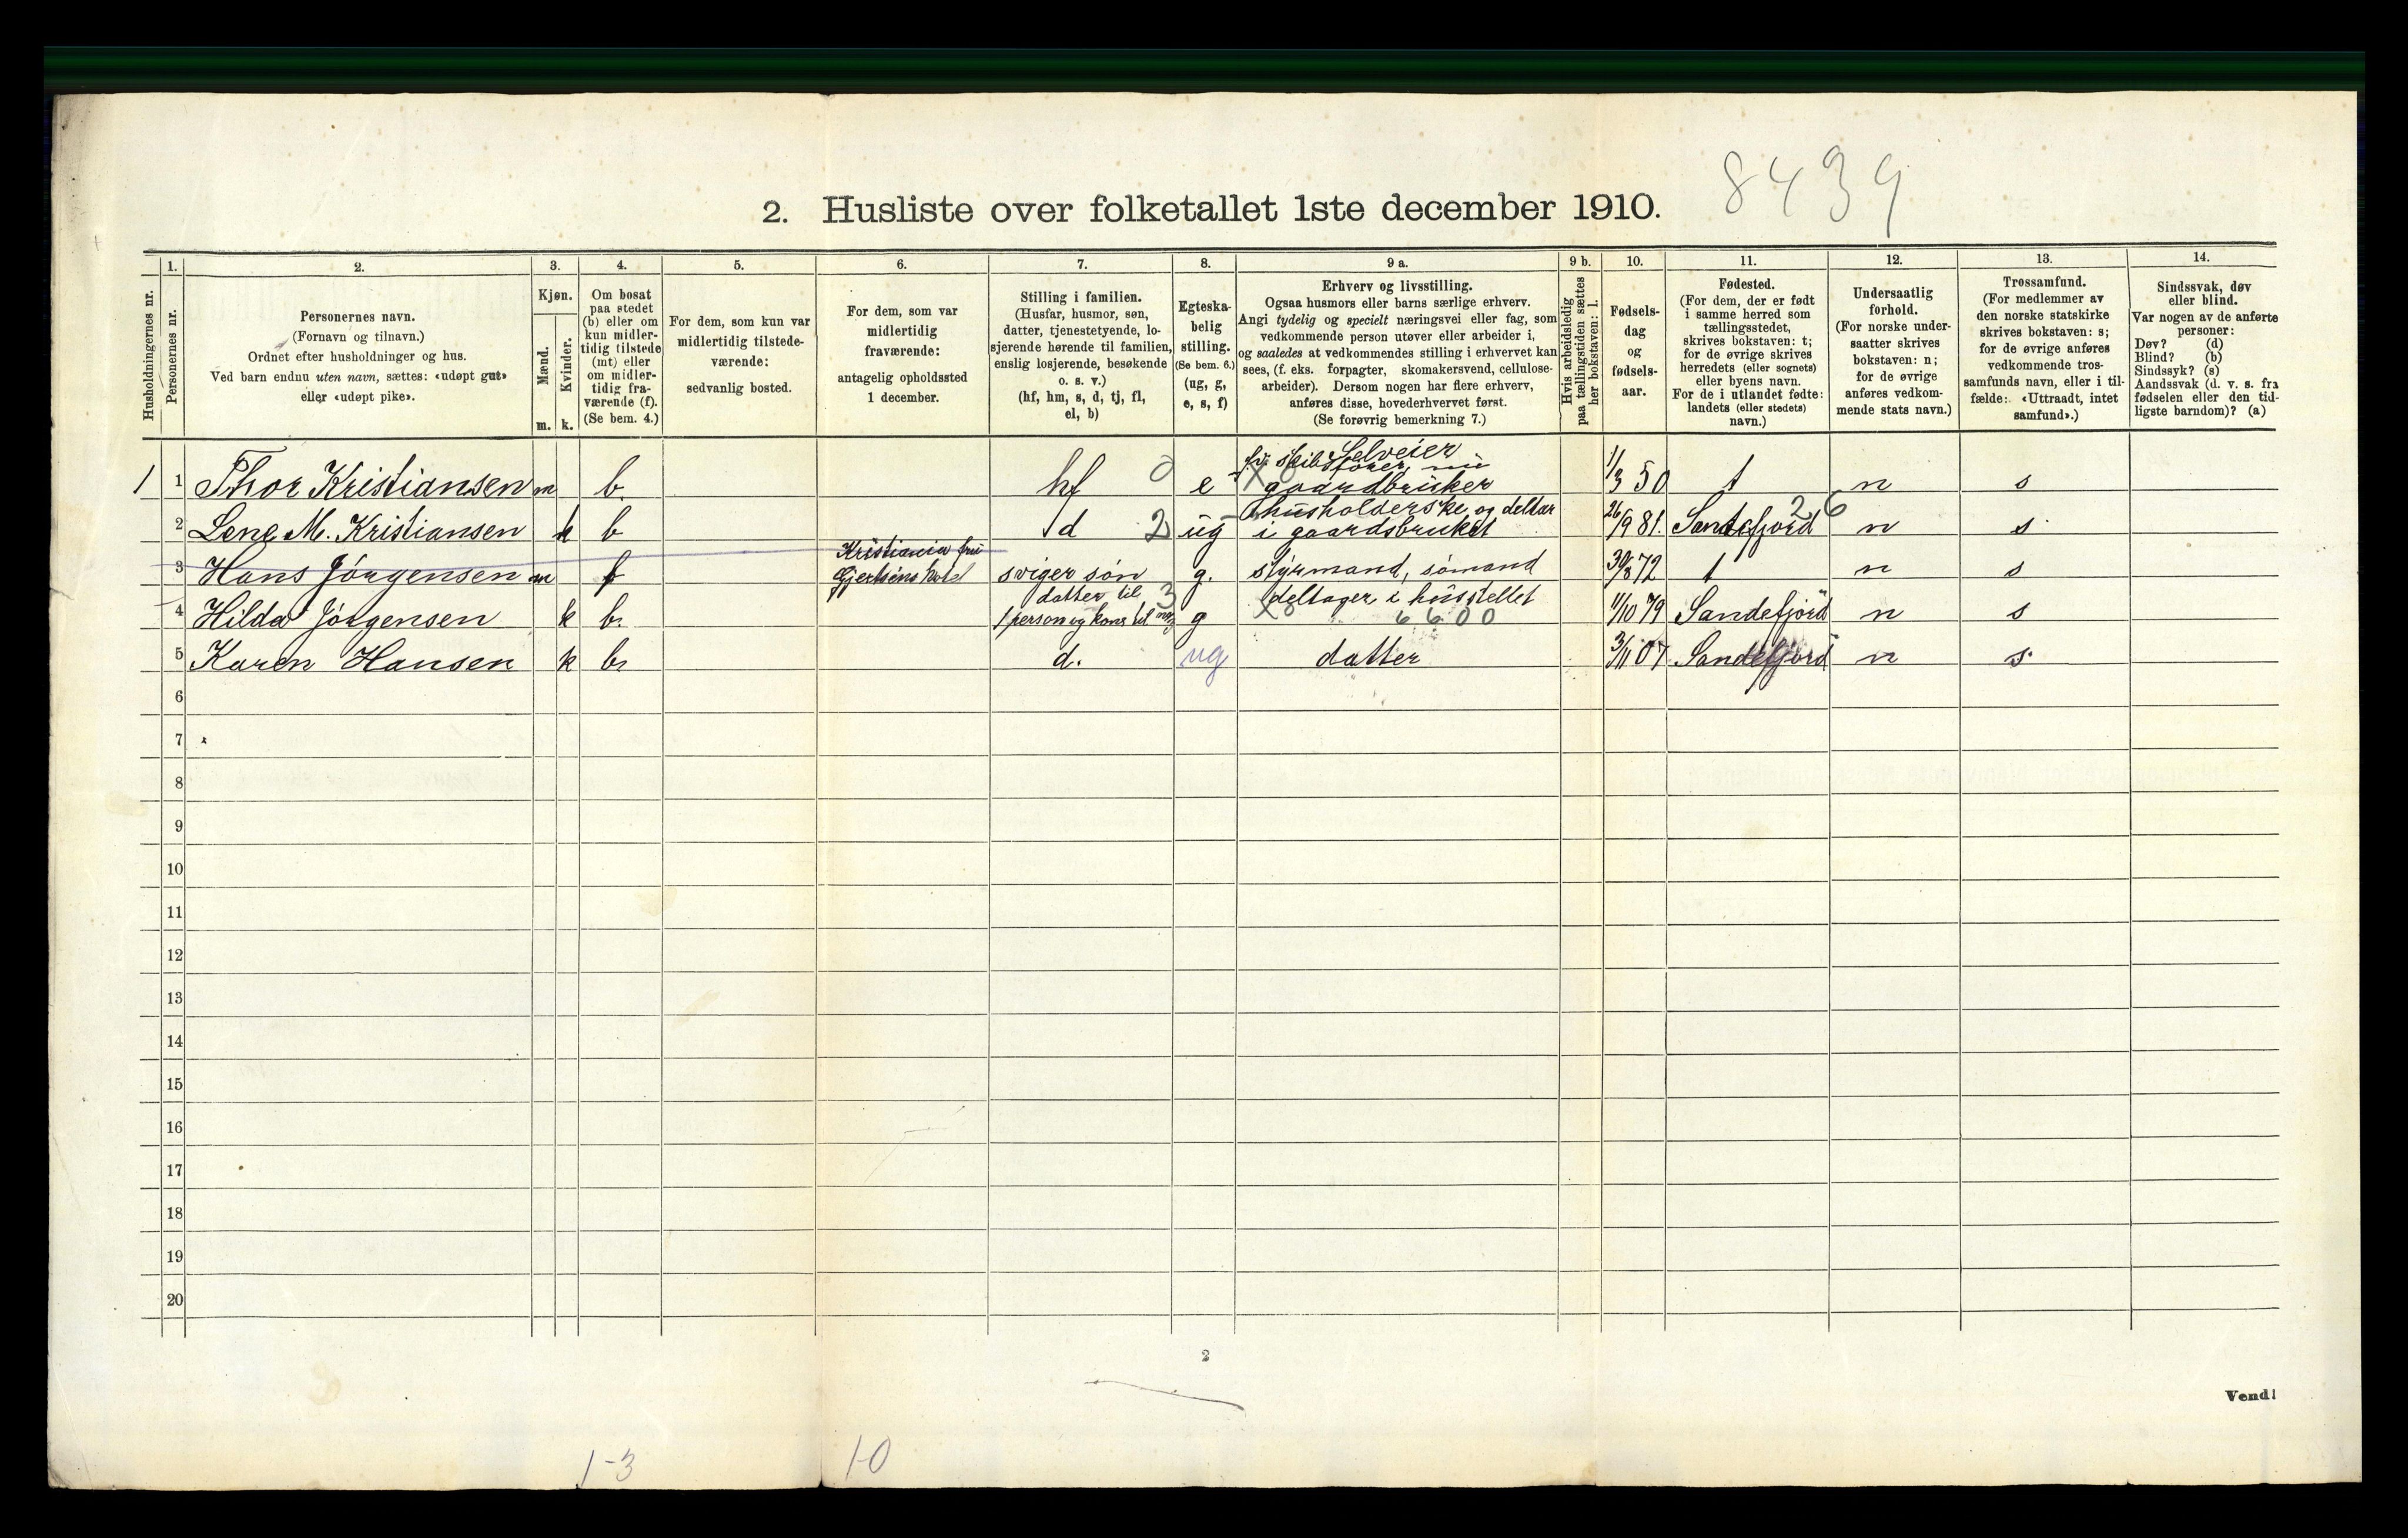 8439
2. Husliste over folketallet 1ste december 1910.
Husholdningernes nr.
1.
Personernes nr.
2.
Personernes navn.
(Fornavn og tilnavn.)
Ordnet efter husholdninger og hus.
Ved barn endnu uten navn, sættes: «udøpt gut»
eller «udøpt pike».
3.
Kjøn.
Mænd.
Kvinder.
m. k.
4.
Om bosat
paa stedet
(b) eller om
kun midler-
tidig tilstede
(mt) eller
om midler-
tidig fra-
værende (f).
(Se bem. 4.)
5.
For dem, som kun var
midlertidig tilstede-
værende:
sedvanlig bosted.
6.
For dem, som var
midlertidig
fraværende:
antagelig opholdssted
1 december.
7.
Stilling i familien.
(Husfar, husmor, søn,
datter, tjenestetyende, lo-
sjerende hørende til familien,
enslig losjerende, besøkende
o. s. v.)
(hf, hm, s, d, tj, fl,
el, b)
8.
Egteska-
belig
stilling.
(Se bem. 6.)
(ug, g,
e, s, f)
9 a.
Erhverv og livsstilling.
Ogsaa husmors eller barns særlige erhverv.
Angi tydelig og specielt næringsvei eller fag, som
vedkommende person utøver eller arbeider i,
og saaledes at vedkommendes stilling i erhvervet kan
sees, (f. eks. forpagter, skomakersvend, cellulose-
arbeider). Dersom nogen har flere erhverv,
anføres disse, hovederhvervet først.
(Se forøvrig bemerkning 7.)
9 b.
Hvis arbeidsledig
paa tællingstiden sættes
her bokstaven: l.
10.
Fødsels-
dag
og
fødsels-
aar.
11.
Fødested.
(For dem, der er født
i samme herred som
tællingsstedet,
skrives bokstaven: t;
for de øvrige skrives
herredets (eller sognets)
eller byens navn.
For de i utlandet fødte:
landets (eller stedets)
navn.)
12.
Undersaatlig
forhold.
(For norske under-
saatter skrives
bokstaven: n;
for de øvrige
anføres vedkom-
mende stats navn.)
13.
Trossamfund.
(For medlemmer av
den norske statskirke
skrives bokstaven: s;
for de øvrige anføres
vedkommende tros-
samfunds navn, eller i til-
fælde: «Uttraadt, intet
samfund».)
14.
Sindssvak, døv
eller blind.
Var nogen av de anførte
personer:
Døv? (d)
Blind? (b)
Sindssyk? (s)
Aandssvak (d. v. s. fra
fødselen eller den tid-
ligste barndom)? (a)
Selveier
fv. skibsfører, nu
1 1 Thor Kristiansen m b. hf 0 e X gaardbruker 1/3 50 t n s
husholderske og deltar 2 6
2 Lene M. Kristiansen k b d 2 ug i gaardsbruket 26/9 81. Sandefjord n s.
Kristiania
3 Hans Jörgensen m f Gjertsens hotel svigersön g. styrmand, sömand 30/8 72 t n s
datter til 3 deltager i husstellet
4 Hilda Jörgensen k b. 1 person og kone til g X 8 6600 11/10 79 Sandefjord n s
5 Karen Hansen k b. d. ug datter 3/11 07 Sandefjord n s.
6
7
8
9
10
11
12
13
14
15
16
17
18
19
20
2
Vend!
1-3 1-0